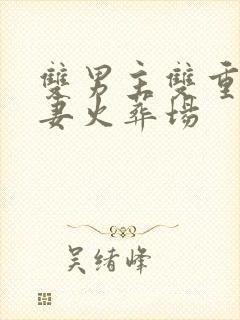 雙男主雙重
妻火葬場
吴绪峰